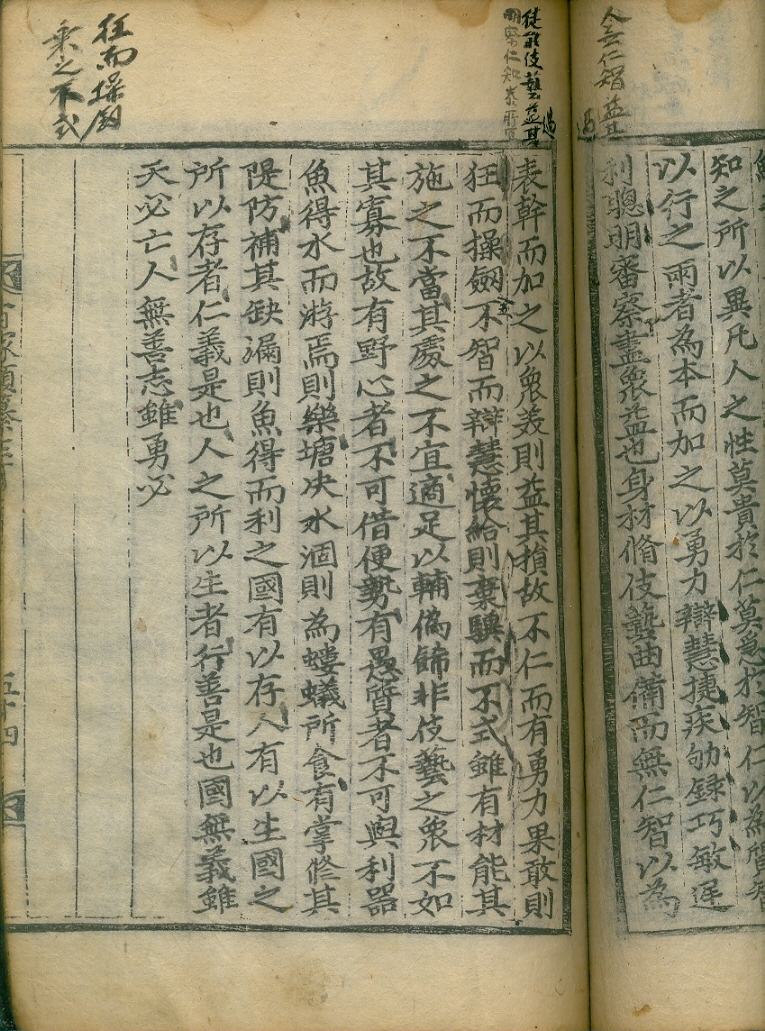 知之所以異凡人之性莫貴扵仁莫急扵智仁以為質智
以行之兩者為本而加之以勇力辯慧捷疾劬録巧敏遅
利聦明審察盡衆益也身材脩伎藝曲備而無仁智以為
表幹而加之以衆美則益其損故不仁而有勇力果敢則
狂而操劔不智而辯慧懐給則棄驥而不式雖有材能其
施之不當其處之不宜適足以輔偽飾非伎藝之衆不如
其寡也故有野心者不可借便勢有愚質者不可與利器
魚得水而游焉則樂塘决水涸則為螻蟻所食有掌修其
隄防補其缺漏則魚得而利之國有以存人有以生國之
所以存者仁義是也人之所以生者行善是也國無義雖
大必亡人無善志雖勇必
五十四
狂而操劔
乗之不式